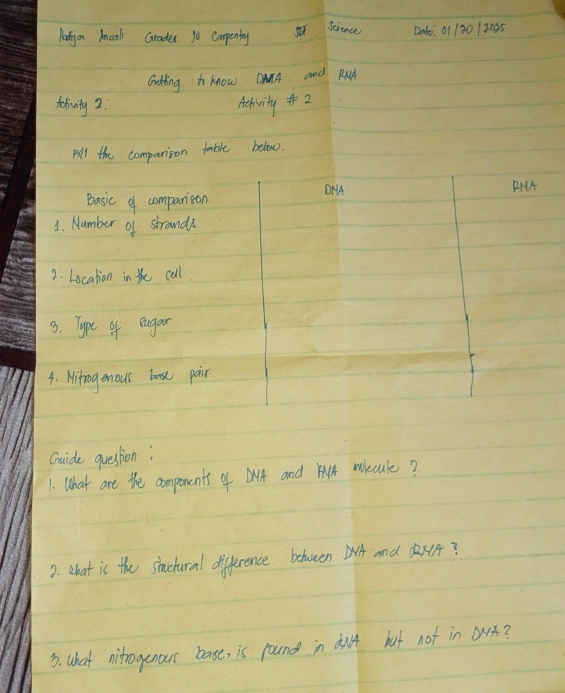 Grades 10 Carpentry Science Date: 01/20/2025
Getting to know DNA and RNA
Activity 2: Activity # 2
Fill the comparison table below.
Basic of comparison DNA RNA
1. Number of strands
2. Location in the cell
3. Type of sugar
4. Nitrogenous base pair
Guide question :
1. What are the components of DNA and RNA molecule ?
2. What is the structural difference between DNA and RNA ?
3. What nitrogenous base, is found in RNA but not in DNA?